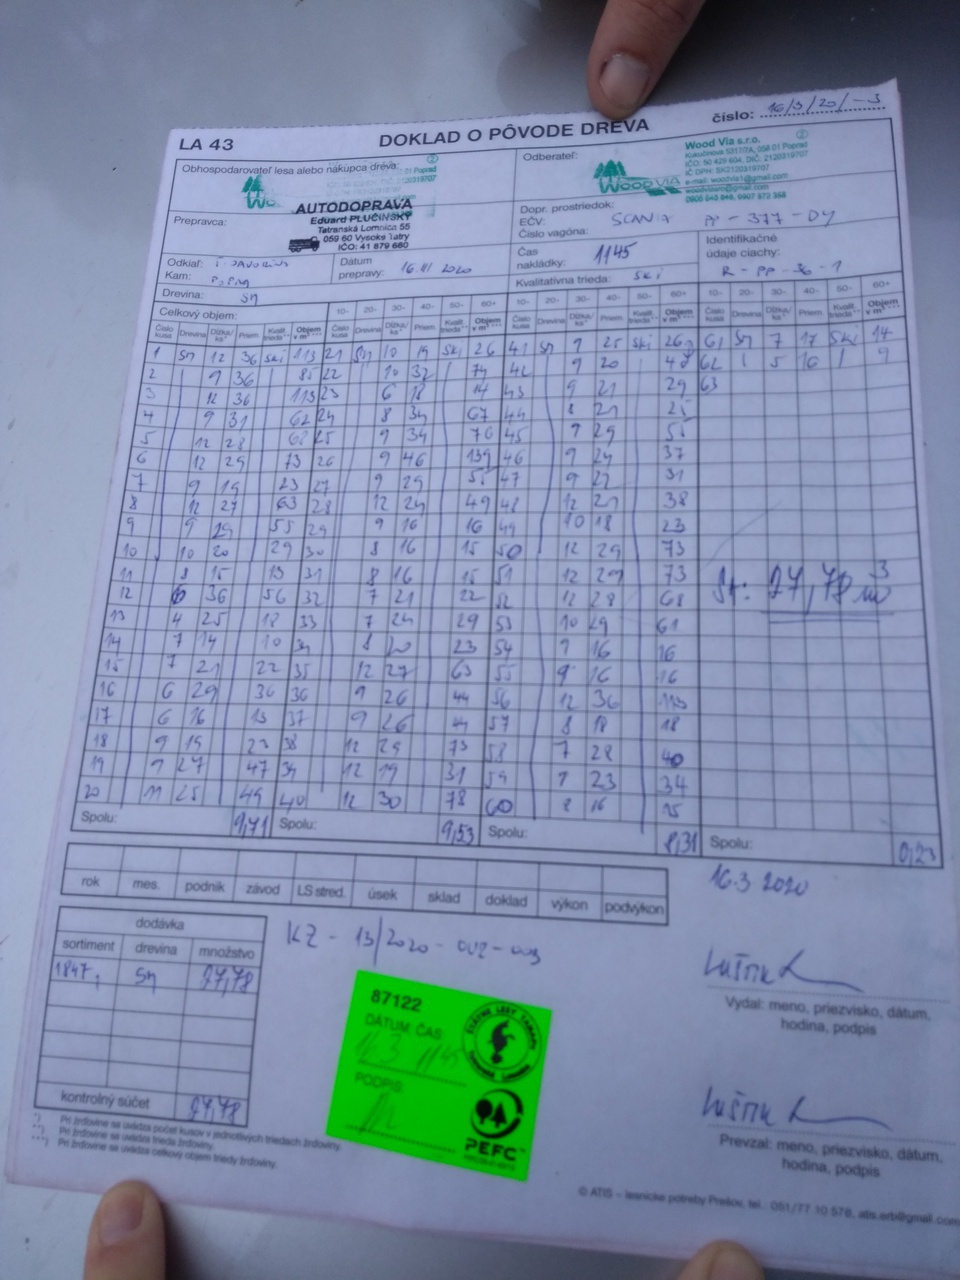 LA 43
DOKLAD O PÔVODE DREVA
číslo: 16/3/20/-3
Obhospodarovateľ lesa alebo nákupca dreva:
Odberateľ:
WOOD VIA
Wood Via s.r.o.
058 01 Poprad
AUTODOPRAVA
Eduard PLUČINSKÝ
Tatranská Lomnica 55
059 60 Vysoké Tatry
IČO: 41 879 680
Prepravca:
Dopr. prostriedok:
EČV: SCANIA PP-377-DY
Číslo vagóna:
Odkiaľ:
Kam:
Dátum
prepravy: 16.III 2020
Čas
nakládky: 1145
Identifikačné
údaje ciachy:
R-PP-36-1
Drevina: SM
Kvalitatívna trieda: Ski
Celkový objem: 10- 20- 30- 40- 50- 60+ 10- 20- 30- 40- 50- 60+ 10- 20- 30- 40- 50- 60+
1 Sm 12 36 Ski 113 21 Sm 10 19 Ski 26 41 Sm 9 25 Ski 61 Sm 7 17 Ski 14
2 9 36 85 22 10 32 74 42 9 20 62 5 16 9
3 12 36 113 23 6 18 14 43 9 21 29 63
4 9 31 62 24 8 34 67 44 8 21 25
5 12 28 68 25 9 34 76 45 9 29 55
6 12 29 73 26 9 46 139 46 9 24 37
7 9 19 23 27 9 29 55 47 9 22 31
8 12 27 63 28 12 24 49 48 12 21 38
9 9 29 55 29 9 16 16 49 10 18 23
10 10 20 29 30 8 16 15 50 12 29 73
11 8 15 13 31 8 16 15 51 12 29 73
12 6 36 56 32 7 21 22 52 12 28 68
13 4 25 18 33 7 24 29 53 10 29 61
14 7 14 10 34 8 20 23 54 9 16 16
15 7 21 22 35 12 27 63 55 9 16 16
16 6 29 36 36 9 26 44 56 12 36 113
17 6 16 13 37 9 26 44 57 8 18 18
18 9 19 23 38 12 29 73 58 7 28 40
19 9 27 47 39 12 19 31 59 9 23 34
20 11 25 49 40 12 30 78 60 8 16 15
27,78 m3
Spolu: 9,71 Spolu: 9,53 Spolu: 8,31 Spolu: 0,23
rok mes. podnik závod LS stred. úsek sklad doklad výkon podvýkon
16.3 2020
dodávka
sortiment drevina množstvo
1847, Sm 27,78
kontrolný súčet 27,78
KZ - 13/2020 - 002 - 003
87122
DÁTUM ČAS
16.3 1145
PODPIS
PEFC
Vydal: meno, priezvisko, dátum,
hodina, podpis
Prevzal: meno, priezvisko, dátum,
hodina, podpis
*) Pri žrďovine sa uvádza počet kusov v jednotlivých triedach žrďoviny.
**) Pri žrďovine sa uvádza trieda žrďoviny.
***) Pri žrďovine sa uvádza celkový objem triedy žrďoviny.
© ATIS – lesnícke potreby Prešov, tel.: 051/77 10 578, atis.erb@gmail.com